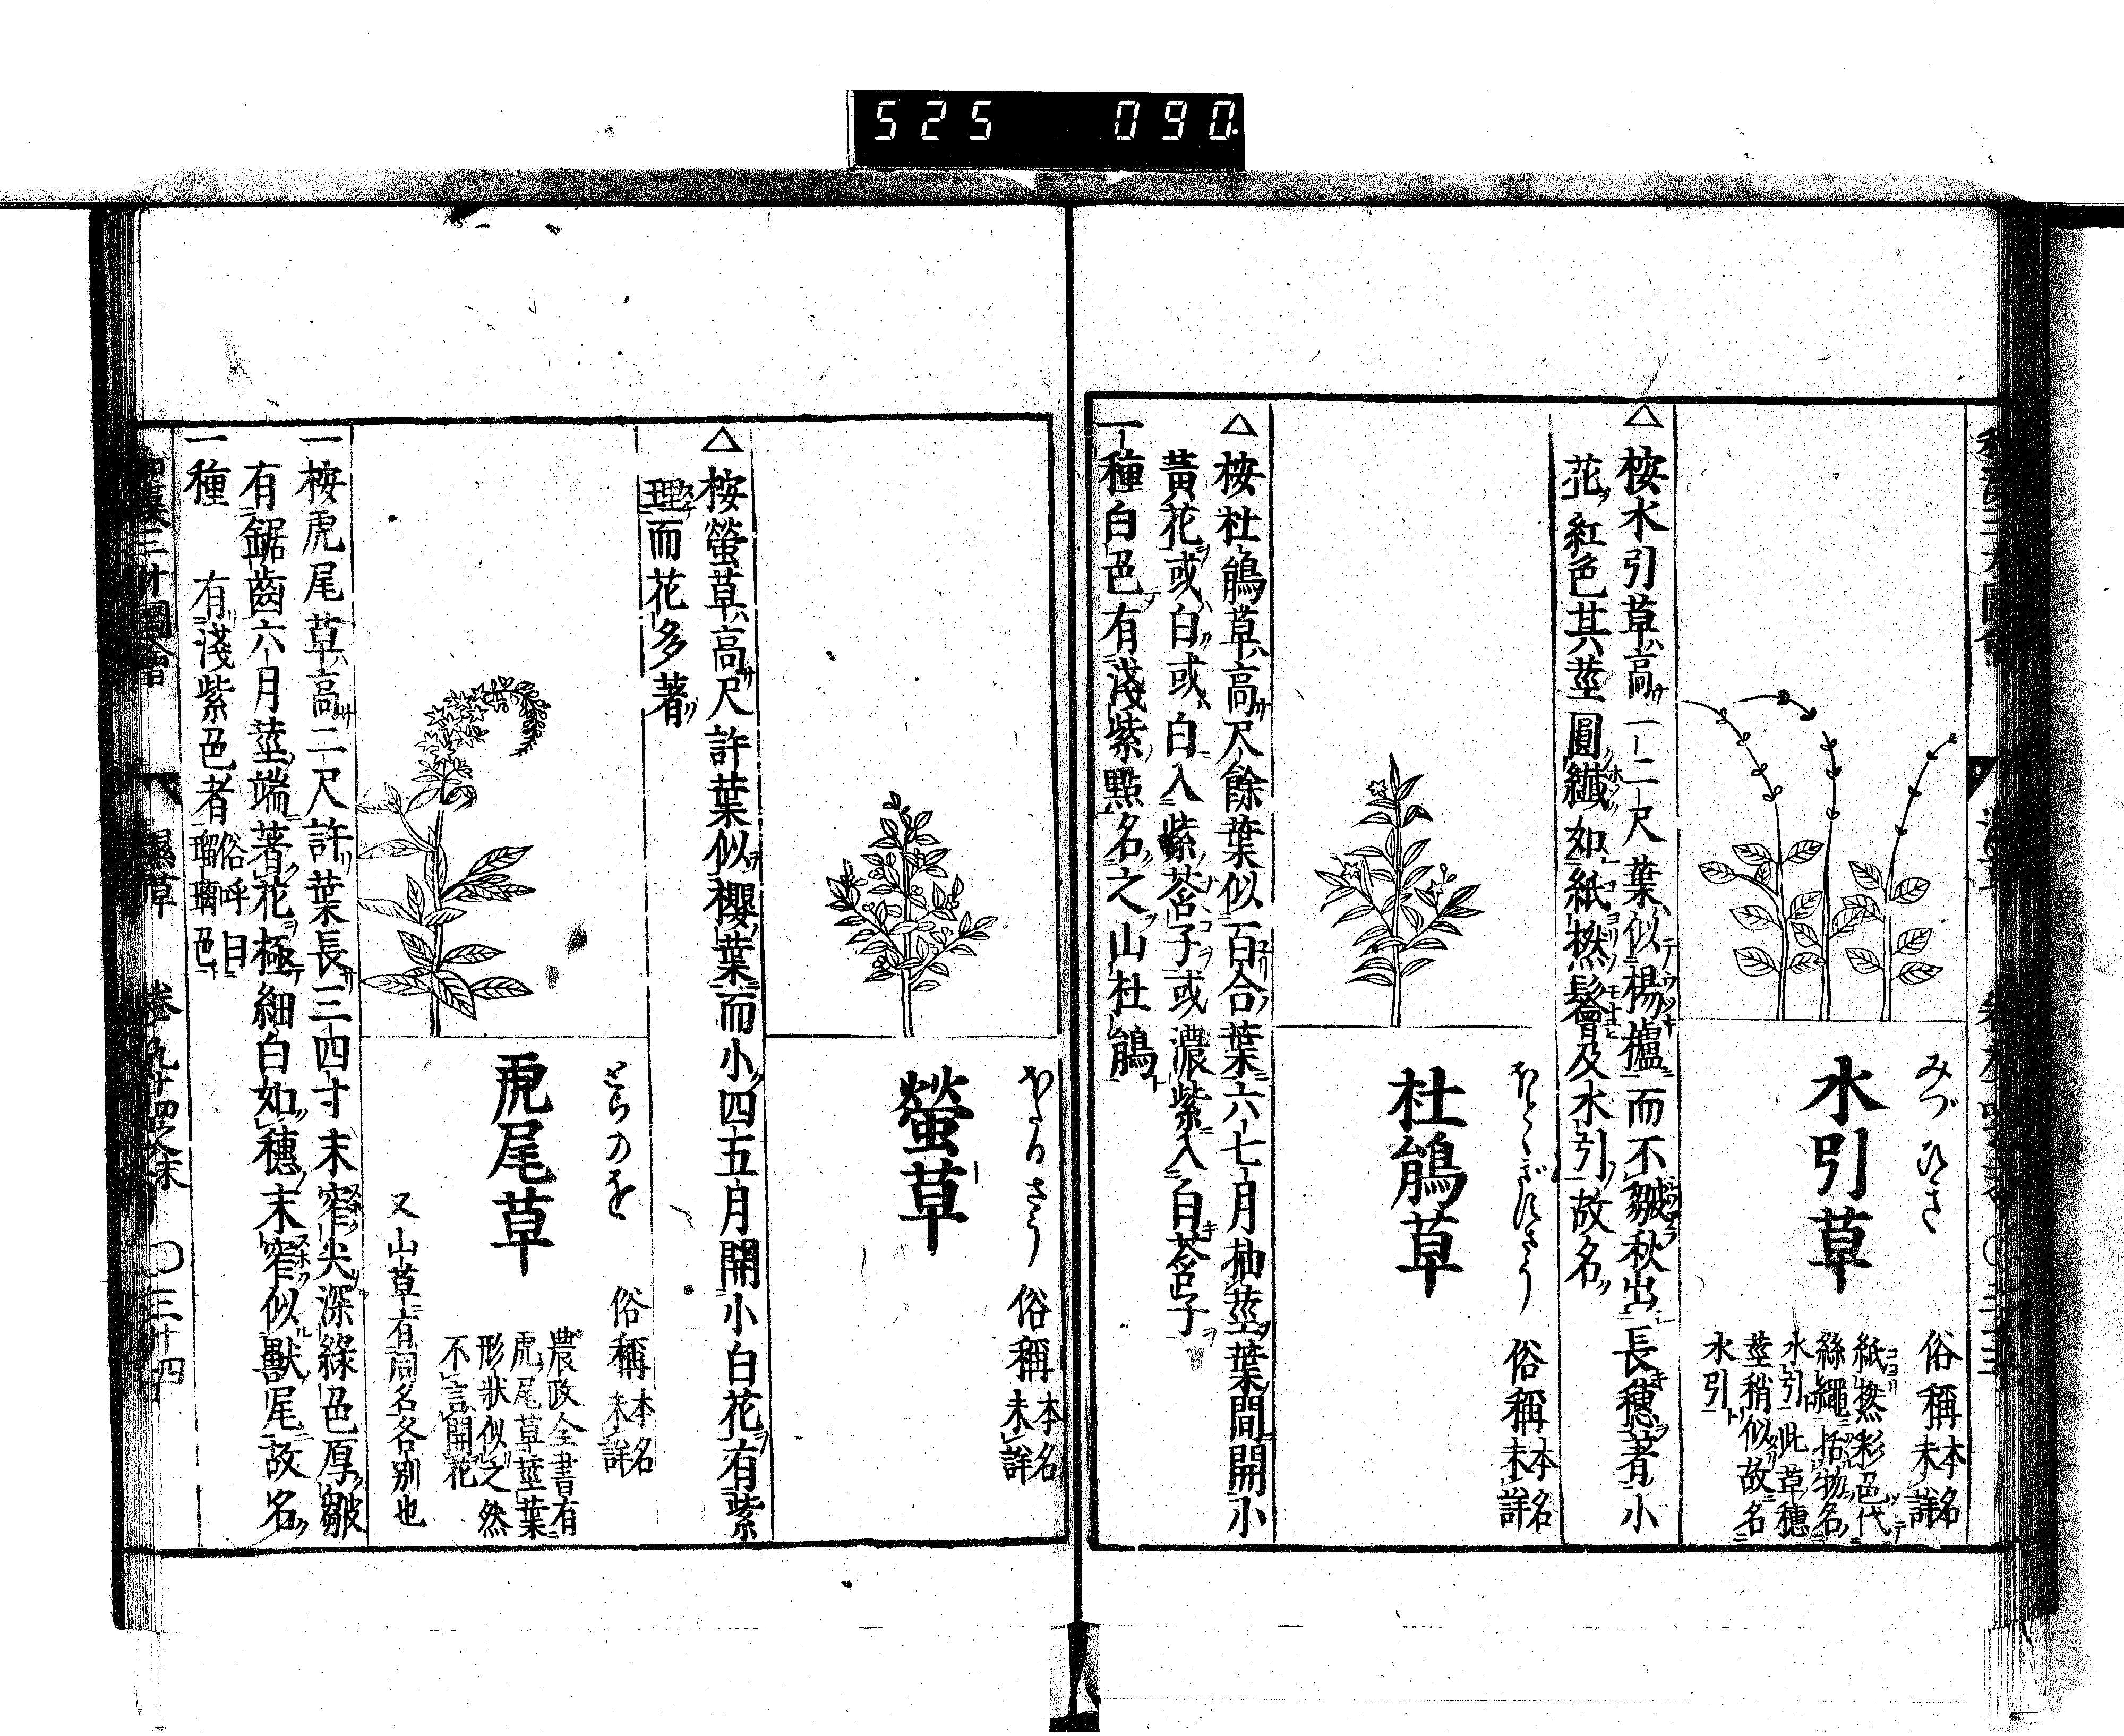 525 090.
みづひき
水引草
俗稱 本名未詳
紙撚彩色代
絲繩括物名
水引此草穗
莖稍似故名
水引
△桉水引草高一二尺葉似楊櫨而不皺秋出長穗著小
花紅色其莖圓纎如紙撚髻及水引故名
杜鵑草
俗稱 本名未詳
△桉杜鵑草高尺餘葉似百合葉六七月抽莖葉間開小
黃花或白或白入紫荅子或濃紫入白荅子
一種白色有淺紫點名之山杜鵑
ほたるさう
螢草
俗稱 本名未詳
△桉螢草高尺許葉似櫻葉而小四五月開小白花有紫
理而花多著
とらのを
虎尾草
俗稱 本名未詳
農政全書有
虎尾草莖葉
形狀似之然
不言開花
又山草有同名各別也
一桉虎尾草高二尺許葉長三四寸末窄尖深綠色厚皺
有鋸齒六月莖端著花極細白如穗末窄似獸尾故名
一種 有淺紫色者 俗呼曰瑠璃色
和漢三才圖會 濕草 卷九十四之末 〇三十四